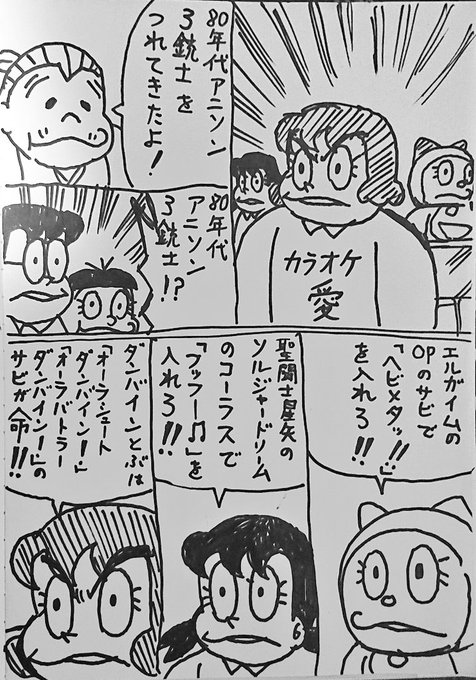 80年代アニソン
3銃士を
つれてきたよ!
カラオケ
愛
80年代
アニソン
3銃士!?
エルガイムの
OPのサビで
「ヘビメタッ!!」
を入れろ!!
聖闘士星矢の
ソルジャードリーム
のコーラスで
「フッフー♫」を
入れろ!!
ダンバインとぶは
「オーラ・シュート
ダンバイン!」
「オーラバトラー
ダンバイン!」の
サビが命!!